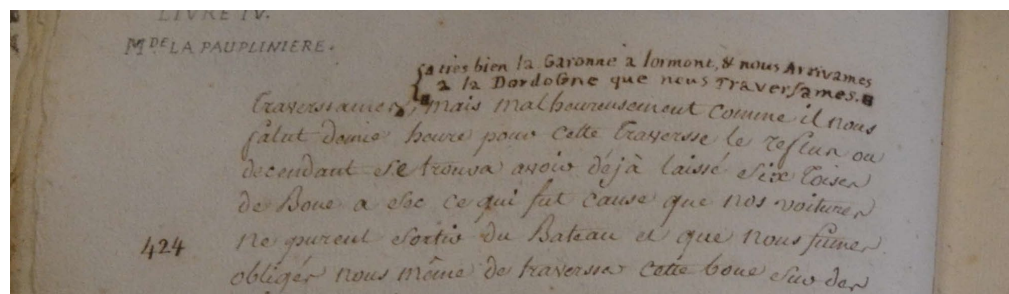 LIVRE IV.
M.DE LA PAUPLINIERE.
aties bien la Garonne à lormont, & nous Arrivames
a la Dordogne que nous Traversames.
traverssames, mais malheureusement comme il nous
falut demie heure pour cette traversse le reflux ou
decendant se trouva avoir déjà laissé six toises
de Boue a sec ce qui fut cause que nos voitures
424
ne purent sortir du Bateau et que nous fumes
obligés nous même de traversser cette boue sur des